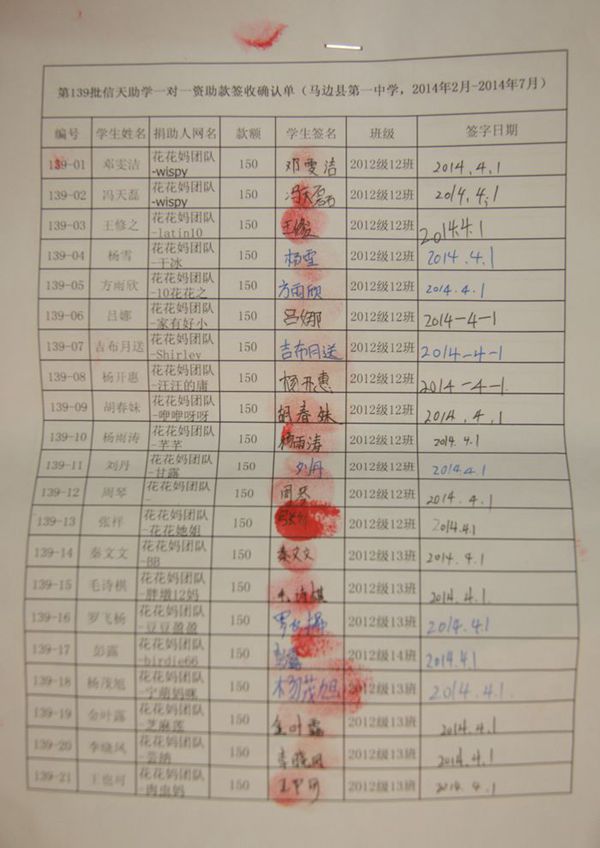 第139批信天助学一对一资助款签收确认单（马边县第一中学，2014年2月-2014年7月）
编号 学生姓名 捐助人网名 款额 学生签名 班级 签字日期
139-01 邓雯洁 花花妈团队-wispy 150 邓雯洁 2012级12班 2014.4.1
139-02 冯天磊 花花妈团队-wispy 150 冯天磊 2012级12班 2014.4.1
139-03 王修之 花花妈团队-latin10 150 2012级12班 2014.4.1
139-04 杨雪 花花妈团队-干冰 150 杨雪 2012级12班 2014.4.1
139-05 方雨欣 花花妈团队-10花花之 150 方雨欣 2012级12班 2014.4.1
139-06 吕娜 花花妈团队-家有好小 150 吕娜 2012级12班 2014-4-1
139-07 吉布月送 花花妈团队-Shirley 150 吉布月送 2012级12班 2014-4-1
139-08 杨开惠 花花妈团队-汪汪的庸 150 杨开惠 2012级12班 2014-4-1.
139-09 胡春妹 花花妈团队-咿咿呀呀 150 胡春妹 2012级12班 2014.4.1
139-10 杨雨涛 花花妈团队-芊芊 150 杨雨涛 2012级12班 2014.4.1
139-11 刘丹 花花妈团队-甘露 150 刘丹 2012级12班 2014.4.1
139-12 周琴 花花妈团队- 150 周琴 2012级12班 2014.4.1
139-13 张祥 花花妈团队-花花她姐 150 2012级12班 2014.4.1
139-14 秦文文 花花妈团队-BB 150 秦文文 2012级13班 2014.4.1
139-15 毛诗棋 花花妈团队-胖墩12妈 150 毛诗棋 2012级13班 2014.4.1
139-16 罗飞杨 花花妈团队-豆豆盈盈 150 2012级13班 2014.4.1
139-17 彭露 花花妈团队-birdie66 150 彭露 2012级14班 2014.4.1
139-18 杨茂旭 花花妈团队-宁萌妈咪 150 杨茂旭 2012级13班 2014.4.1
139-19 金叶露 花花妈团队-芝麻莲 150 金叶露 2012级13班 2014.4.1
139-20 李晓凤 花花妈团队-芸纳 150 李晓凤 2012级13班 2014.4.1
139-21 王也可 花花妈团队-肉虫妈 150 2012级13班 2014.4.1